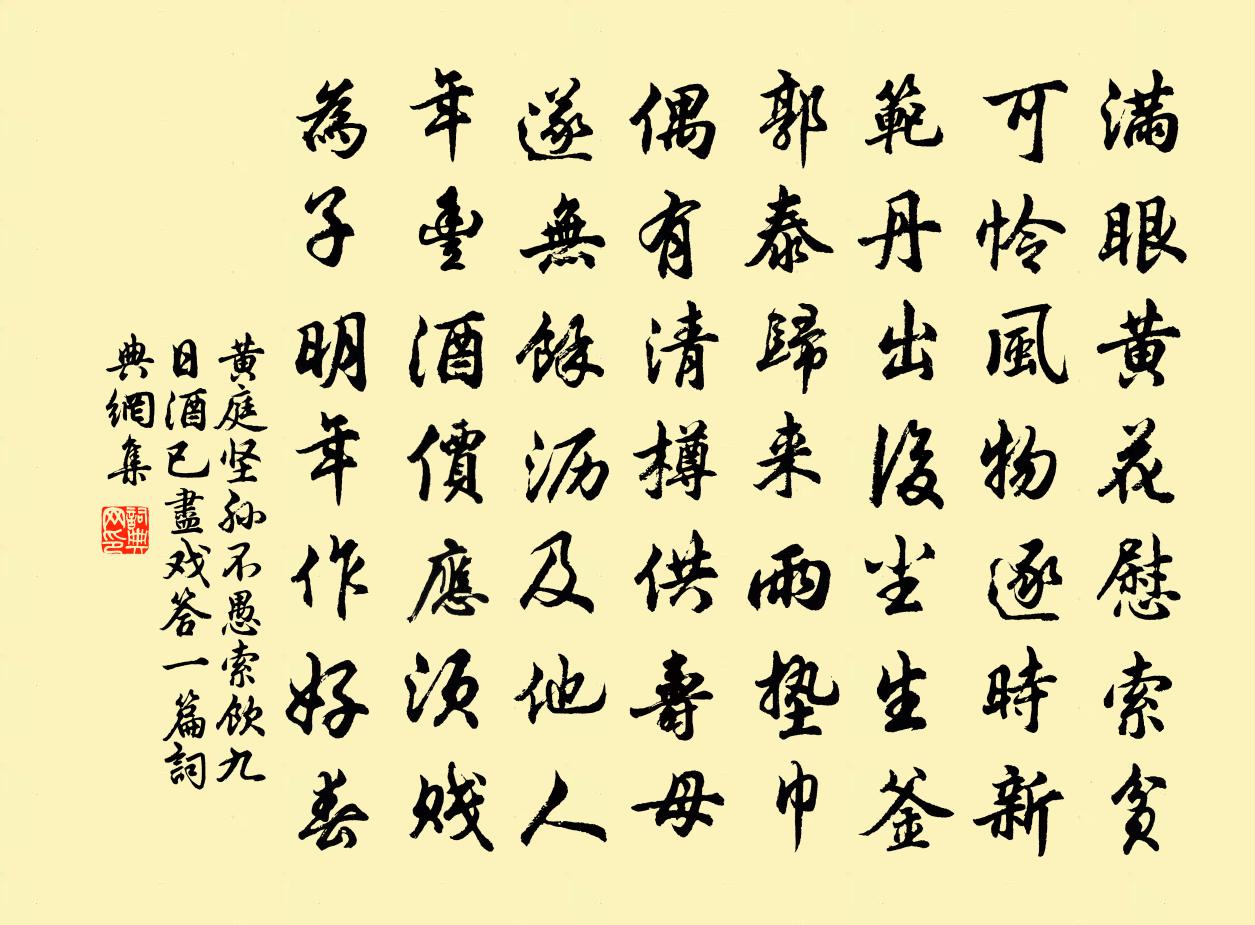 滿眼黄花慰索貧
可怜風物逐時新
範丹出後尘生釜
郭泰歸来雨墊巾
偶有清樽供壽母
遂無餘沥及他人
年豐酒價應须賤
為子明年作好春
黄庭坚孙不愚索飲九
日酒已盡戏答一篇詞
典網集
詞典网印